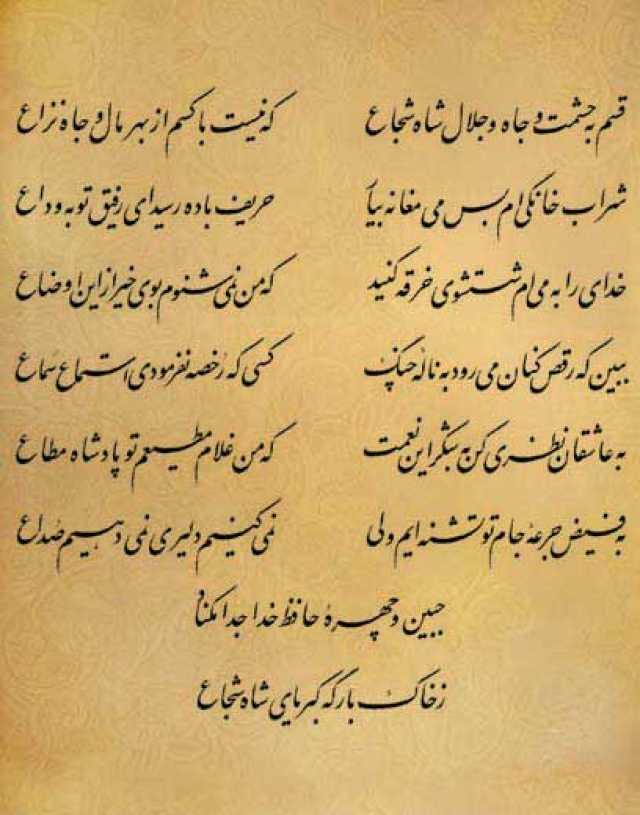 قسم به حشمت و جاه و جلال شاه شجاع که نیست با کسم از بهر مال و جاه نزاع
شراب خانگی ام بس می مغانه بیار حریف باده رسید ای رفیق توبه وداع
خدای را به می ام شستشوی خرقه کنید که من نمی شنوم بوی خیر از این اوضاع
ببین که رقص کنان می رود به ناله چنگ کسی که رُخصه نفرمودی استماع سَماع
به عاشقان نظری کن به شکر این نعمت که من غلام مطیعم تو پادشاه مطاع
به فیض جرعه جام تو تشنه ایم ولی نمی کنیم دلیری نمی دهیم صُداع
جبین و چهرهٔ حافظ خدا جدا مکناد
ز خاک بارگه کبریای شاه شجاع